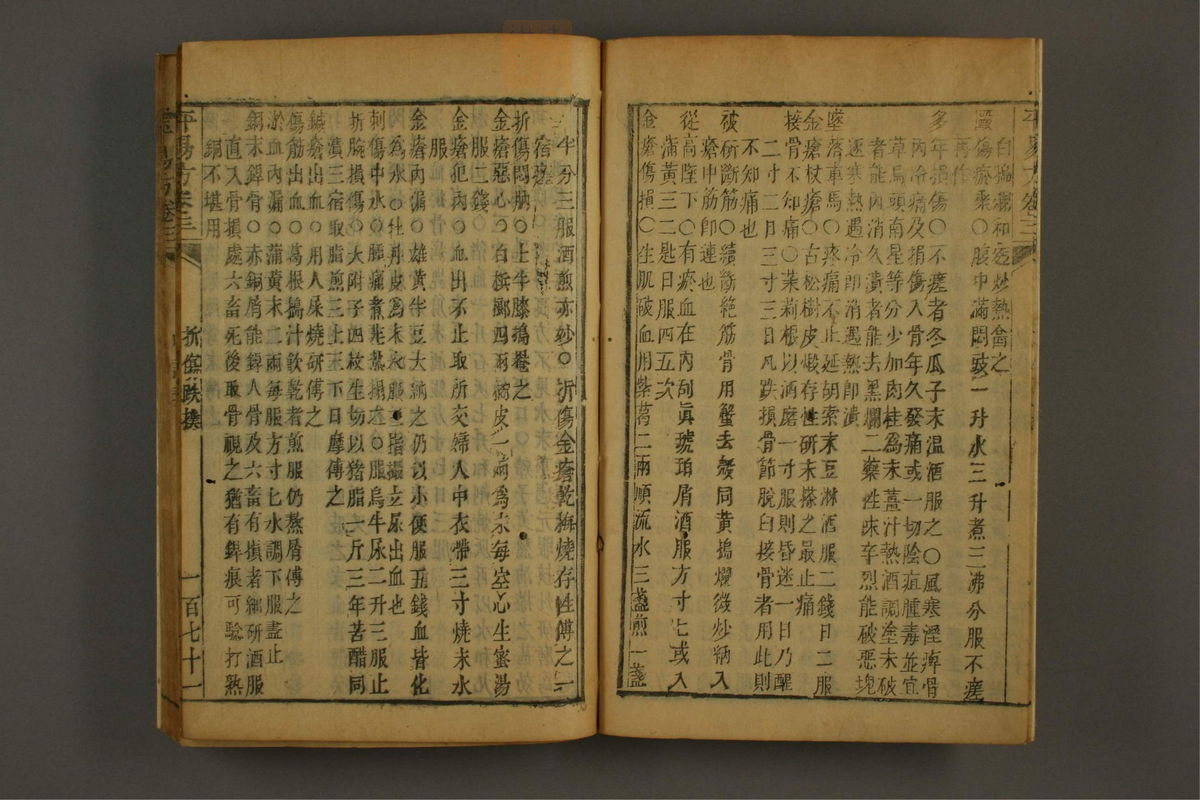 白醋調和透炒熱禽之
傷瘀聚○腹中滿悶豉一升水三升煮三沸分服不瘥
再作
多年損傷○不瘥者冬瓜子末温酒服之○風寒溼痺骨
内冷痛及損傷入骨年久發痛或一切陰疽腫毒並宜
草烏頭南星等分少加肉桂為末薑汁熱酒調塗未破
者能内消久潰者能去黑爛二藥性味辛烈能破惡塊
逐寒熱遇冷即消遇熱即潰
墜落車馬○疼痛不止延胡索末豆淋酒服二錢日二服
金瘡杖瘡○古松樹皮煅存性研末搽之最止痛
接骨不知痛○茉莉根以酒磨一寸服則昏迷一日乃醒
二寸二日三寸三日凡跌損骨節脫臼接骨者用此則
不知痛也
被斫斷筋○續斷絶筋骨用蟹去殼同黃搗爛微炒納入
瘡中筋即連也
從高墜下○有瘀血在内刮真琥珀屑酒服方寸匕或入
蒲黃三二匙日服四五次
金瘡傷損○生肌破血用紫葛二兩順流水三盞煎一盞
半分三服酒煎亦妙○折傷金瘡乾梅燒存性傅之一
宿瘥
折傷悶朒○土牛膝搗罨之
金瘡惡心○白檳榔四兩橘皮一兩為末每空心生蜜湯
服二錢
金瘡犯内○血出不止取所交婦人中衣帶三寸燒末水
服
金瘡内漏○雄黃半豆大納之仍以小便服五錢血皆化
為水○牡丹皮為末水服三指撮立尿出血也
刺傷中水○腫痛煮韭熱搨之○服烏牛尿二升三服止
折腕損傷○大附子四枚生切以猪脂一斤三年苦醋同
漬三宿取脂煎三上三下日摩傅之
鍼瘡血出○用人屎燒研傅之
傷筋出血○葛根搗汁飲乾者煎服仍熬屑傅之
瘀血内漏○蒲黃末二兩每服方寸匕水調下服盡止
銅末銲骨○赤銅屑能銲人骨及六畜有損者細研酒服
直入骨損處六畜死後取骨視之猶有銲痕可驗打熟
銅不堪用
折傷跌撲
一百七十一